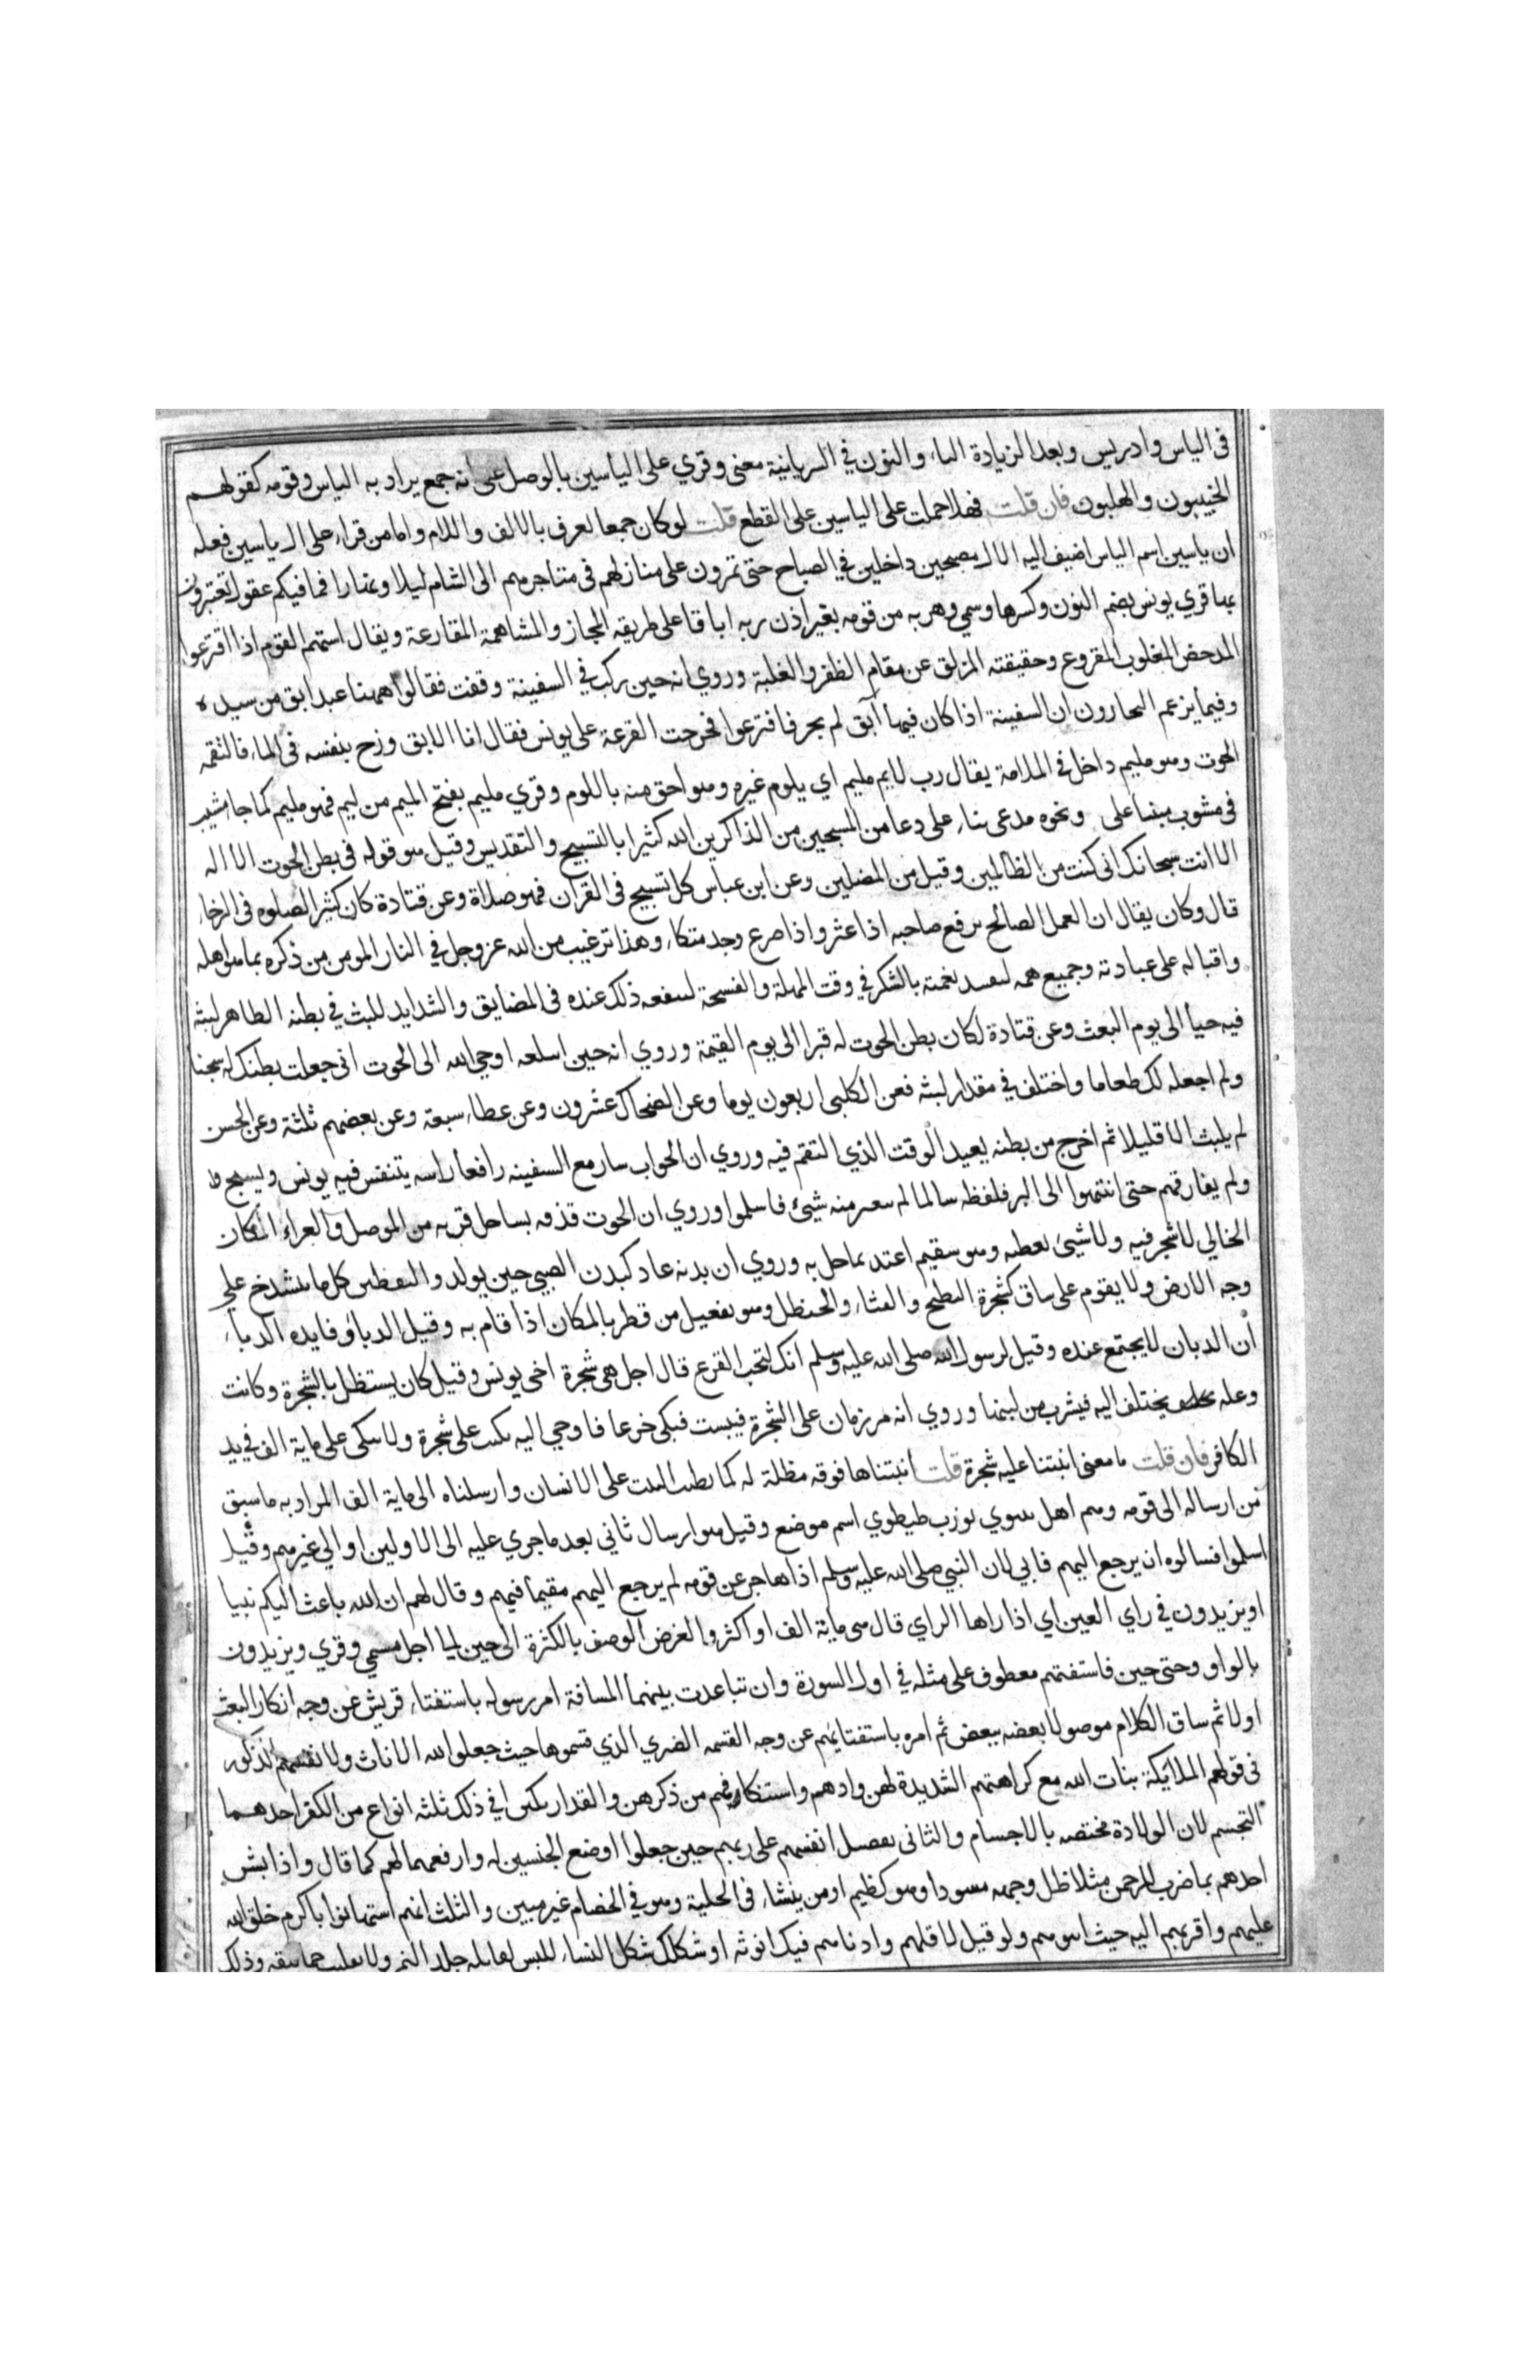 فى الياس وادريس وبعد الزيادة الياء والنون في السريانية معنى وقري على الياسين بالوصل على انه جمع يراد به الياس وقومه كقولهم
الخبيبون والمهلبون فان قلت فهلا حملت على الياسين على القطع قلت لو كان جمعا لعرف بالالف واللام واما من قراء على ال ياسين فعله
ان ياسين اسم الياس اضيف اليه الال مصبحين داخلين في الصباح حتى تمرون على منازلهم فى متاجرهم الى الشام ليلا ونهارا فما فيكم عقول تعتبرون
بها قري يونس بضم النون وكسرها وسمي وهربه من قومه بغير اذن ربه اباقا على طريقه المجاز والمشاهمة المقارعة ويقال استهم القوم اذا اقترعوا
المدحض المغلوب المقروع وحقيقته المزلق عن مقام الظفر والغلبة وروي انه حين ركب في السفينة وقفت فقالوا ههنا عبد ابق من سيده
وفيما يزعم البحارون ان السفينة اذا كان فيها آبق لم يجر فاقترعوا فخرجت القرعة على يونس فقال انا الابق وزج بنفسه فى الماء فالتقمه
الحوت وهو مليم داخل في الملامة يقال رب لايم مليم اي يلوم غيره وهو احق منه باللوم وقري مليم بفتح الميم من ليم فهو مليم كما جا مشيب
فى مشوب مبنيا على ونحوه مدعى بناء على دعا من المسبحين من الذاكرين الله كثيرا بالتسبيح والتقديس وقيل هو قوله فى بطن الحوت لا اله
الا انت سبحانك انى كنت من الظالمين وقيل من المصلين وعن ابن عباس كل تسبيح فى القران فهو صلاة وعن قتادة كان كثير الصلوه فى الرخاء
قال وكان يقال ان العمل الصالح يرفع صاحبه اذا عثر واذا صرع وجد متكاء وهذا ترغيب من الله عز وجل في النار المومن من ذكره بما هو اهله
واقباله على عبادته وجميع همه نعمته بالشكر في وقت المهلة والفسحة لينفعه ذلك عنده فى المضايق والشدايد للبث في بطنه الظاهر لبثه
فيه حيا الى يوم البعث وعن قتادة لكان بطن الحوت له قبرا الى يوم القيمة وروي انه حين ابتلعه اوحى الله الى الحوت انى جعلت بطنك له سجنا
ولم اجعله لك طعاما واختلف في مقدار لبثه فعن الكلبى اربعون يوما وعن الضحاك عشرون وعن عطاء سبعة وعن بعضهم ثلثة وعن الحسن
لم يلبث الا قليلا ثم اخرج من بطنه بعيد الوقت الذي التقم فيه وروي ان الحوات سار مع السفينه رافعا راسه يتنفس فيه يونس ويسبح
ولم يفارقهم حتى انتهوا الى البر فلفظه سالما لم منه شيئ فاسلموا وروي ان الحوت قذفه بساحل قريه من الموصل والعراء المكان
الخالي لا شجر فيه ولا شيئ يغطيه وهو سقيم اعتد بما حل به وروي ان بدنه عاد كبدن الصبي حين يولد واليقطين كل ما ينشدخ على
وجه الارض ولا يقوم على ساق كشجرة البطيخ والقثاء والحنظل وهو يفعيل من قطر بالمكان اذا قام به وقيل الدباؤ فايده الدباء
أن الدبان لا يجتمع عنده وقيل لرسول الله صلى الله عليه وسلم انك لتحب القرع قال اجل هي شجرة اخى يونس وقيل كان يستظل بالشجرة وكانت
وعله يختلف اليه فيشرب من لبنها وروي انه مر زمان على الشجرة فيبست فبكى جزعا فاوحي اليه بكيت على شجرة ولا تبكى على ماية الف في يد
الكافر فان قلت ما معنى انبتنا عليه شجرة قلت انبتناها فوقه مظلة له كما يطنب البيت على الانسان وارسلناه الى ماية الف المراد به ما سبق
من ارساله الى قومه وهم اهل نينوي بوزن طيطوي اسم موضع وقيل هو ارسال ثاني بعد ما جري عليه الى الاولين او الى غيرهم وقيل
اسلموا فسالوه ان يرجع اليهم فابي لان النبي صلى الله عليه وسلم اذا هاجر عن قومه لم يرجع اليهم مقيما فيهم وقال لهم ان الله باعث اليكم نبيا
او يزيدون في راي العين اي اذا راها الراي قال هى ماية الف او اكثر والغرض الوصف بالكثرة الى حين الى اجل مسمى وقري ويزيدون
بالواو وحتى حين فاستفتهم معطوف على مثله في اول السورة وان تباعدت بينهما المسافة امر رسوله باستفتاء قريش عن وجه انكار البعث
اولا ثم ساق الكلام موصولا بعضه ببعض ثم امره باستفتايهم عن وجه القسمه الضيزي الذي قسموها حيث جعلوا لله الاناث ولانفسهم الذكور
فى قولهم الملائكة بنات الله مع كراهتهم الشديدة لهن وادهم واستنكافهم من ذكرهن والقد ارتكبوا في ذلك ثلثه انواع من الكفر احدهما
التجسم لان الولادة مختصه بالاجسام والثانى تفضيل انفسهم على ربهم حين جعلوا اوضع الجنسين له وارفعهما لهم كما قال واذا بشر
احدهم بما ضرب للرحمن مثلا ظل وجهه مسودا وهو كظيم اومن ينشاء فى الحلية وهو في الخصام غير مبين والثلث انهم استهانوا باكرم خلق الله
عليهم واقربهم اليه حيث انثوهم ولو قيل لاقلهم وادناهم فيك انوثه او شكلك شكل النساء للبس لقايله جلد النمر وذلك